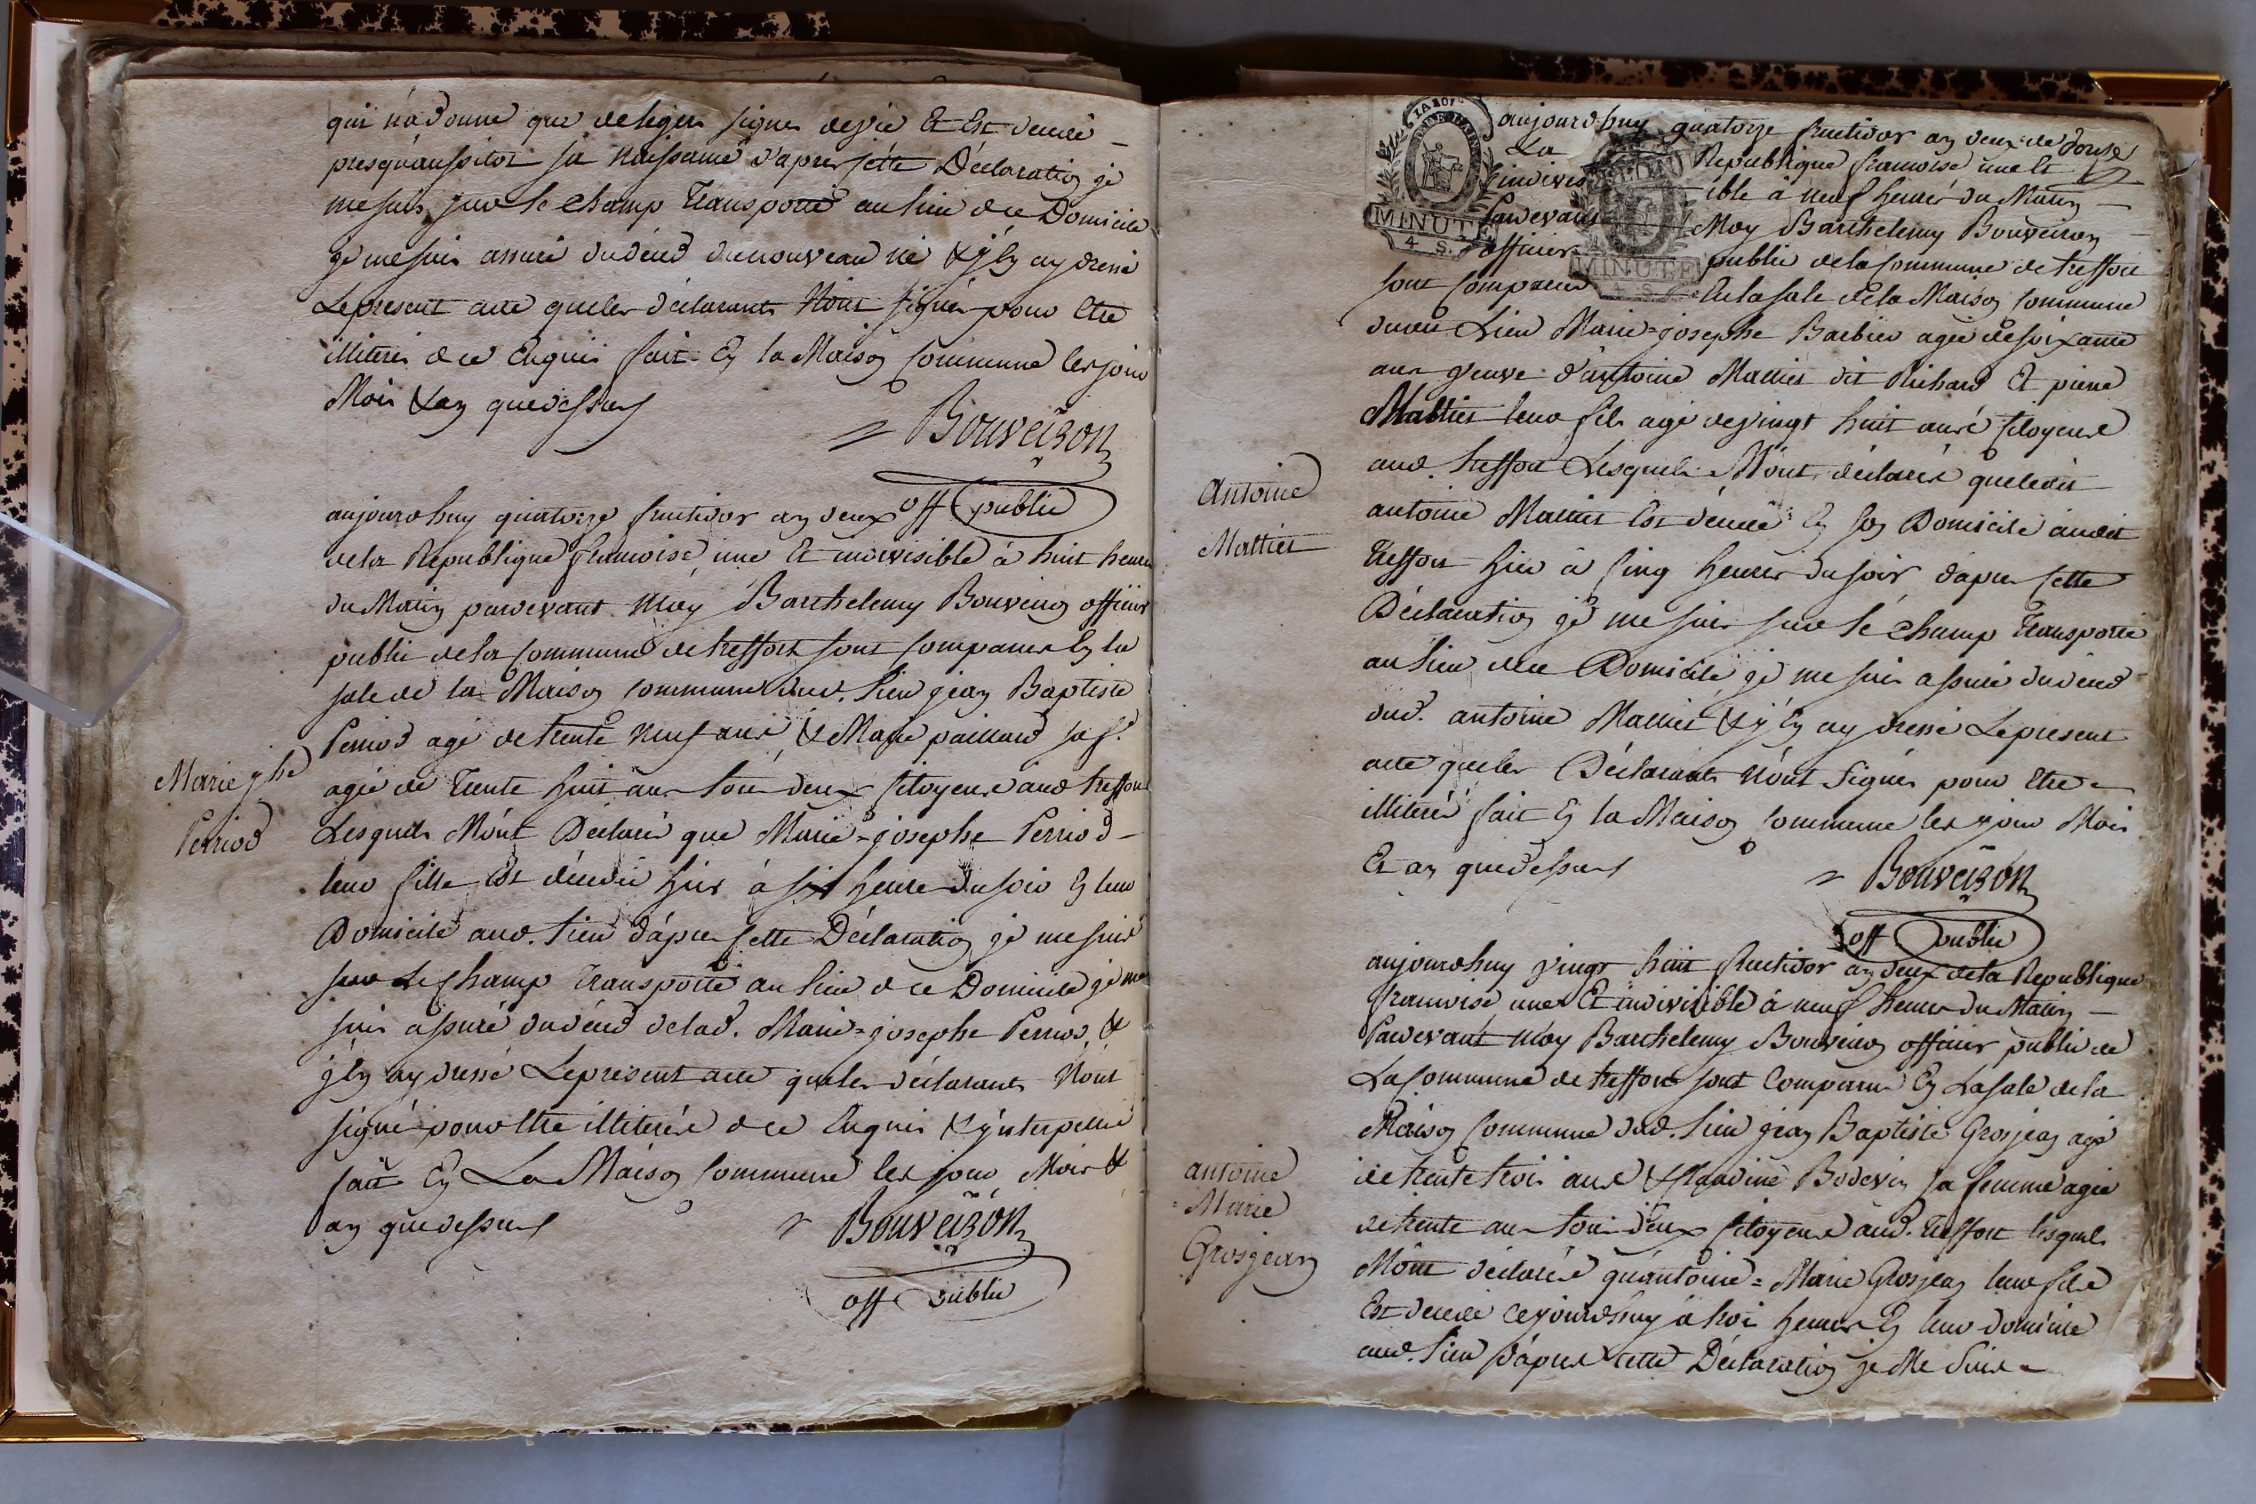 qui n'a donné que de leger signes de vie Et Est décédé
presqu'aussitot sa naissance d'apres cette Déclaration je
me suis sur le champ Transporté au lieu de ce Domicile
je me suis assuré du décéd du nouveau né & j'En ay dressé
Le present acte que les déclarants N'ont signés pour Etre
illiterés de ce Enquis fait En la Maison Commune les jour
Mois & an que dessus
Bouveiron
off public
aujourdhuy quatorze fructidor an deux
de la Republique francoise, une Et indivisible à huit heures
du Matin pardevant Moy Barthelemy Bouveiron officier
public de la Commune de treffort sont Comparus En la
sale de la Maison Commune dud. lieu jean Baptiste
Perriod agé de trente neuf ans & Marie paillard sa f.
agée de Trente huit ans tous deux Citoyens aud treffort
Lesquels M'ont Déclarés que Marie=josephe Perriod
leur fille Est décédée hier à six heures du soir En leur
Domicile aud. lieu d'àpres Cette Déclaration je me suis
sur Le Champ Transporté au lieu de ce Domicile je me
suis assuré du décéd de lad. Marie=josephe Perriod, &
j'En ay dressé Le present acte que les déclarants N'ont
signé pour Etre illiterés de ce Enquis & interpellé
fait En La Maison Commune les jour Mois &
an que dessus
Bouveiron
off public
Marie jphe
Perriod
LA LOI
MINUTE
4. S.
MINUTE
4. S.
aujourdhuy quatorze fructidor an deux de
La Republique francoise une Et
indivisible à neuf heures du Matin
Pardevant Moy Barthelemy Bouveiron
officier public de la Commune de treffort
sont Comparus En la sale de la Maison Commune
du lieu Marie=josephe Barbier agée de soixante
ans veuve d'antoine Mattiet dit Richard Et pierre
Mattiet leur fils agé de vingt huit ans Citoyens
aud. treffort Lesquels M'ont déclarés que ledit
antoine Mattiet Est décédé En son Domicile audit
treffort hier à Cinq heures du soir d'apres Cette
Déclaration je me suis sur le Champ Transporté
au lieu de ce Domicile je me suis assuré du décéd
dud. antoine Mattiet & j'En ay dressé Le present
acte que les Déclarants N'ont Signés pour Etre
illiterés fait En la Maison Commune les jour Mois
Et an que dessus
Bouveiron
off public
antoine
Mattiet
aujourdhuy vingt huit fructidor an deux de la Republique
francoise une Et indivisible à neuf heures du Matin
Pardevant Moy Barthelemy Bouveiron officier public de
La Commune de treffort sont Comparus En La sale de la
Maison Commune dud. lieu jean Baptiste Grosjean agé
de trente trois ans & Bodevin sa femme agée
de trente ans tous deux Citoyens aud. treffort lesquels
M'ont déclarés qu'antoine=Marie Grosjean leur fils
Est décédé cejourdhuy à trois heures En leur domicile
aud. lieu d'apres Cette Déclaration je Me Suis
antoine
Marie
Grosjean